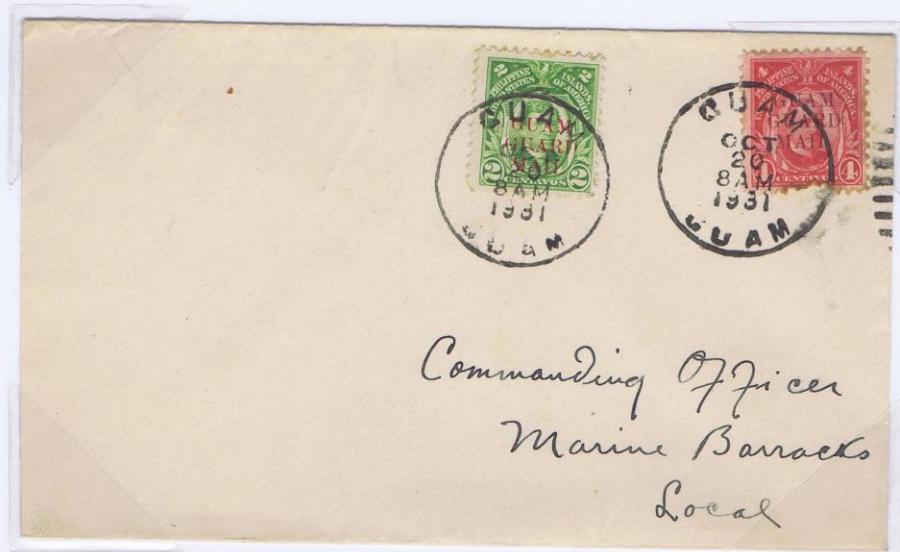 2 2
PHILIPPINE ISLANDS
UNITED STATES OF AMERICA
GUAM
GUARD
MAIL
2 CENTAVOS 2
GUAM
20
8AM
1931
GUAM
4 4
PHILIPPINE ISLANDS
UNITED STATES OF AMERICA
GUAM
GUARD
MAIL
CENTAVOS 4
GUAM
OCT
20
8AM
1931
GUAM
Commanding Officer
Marine Barracks
Local